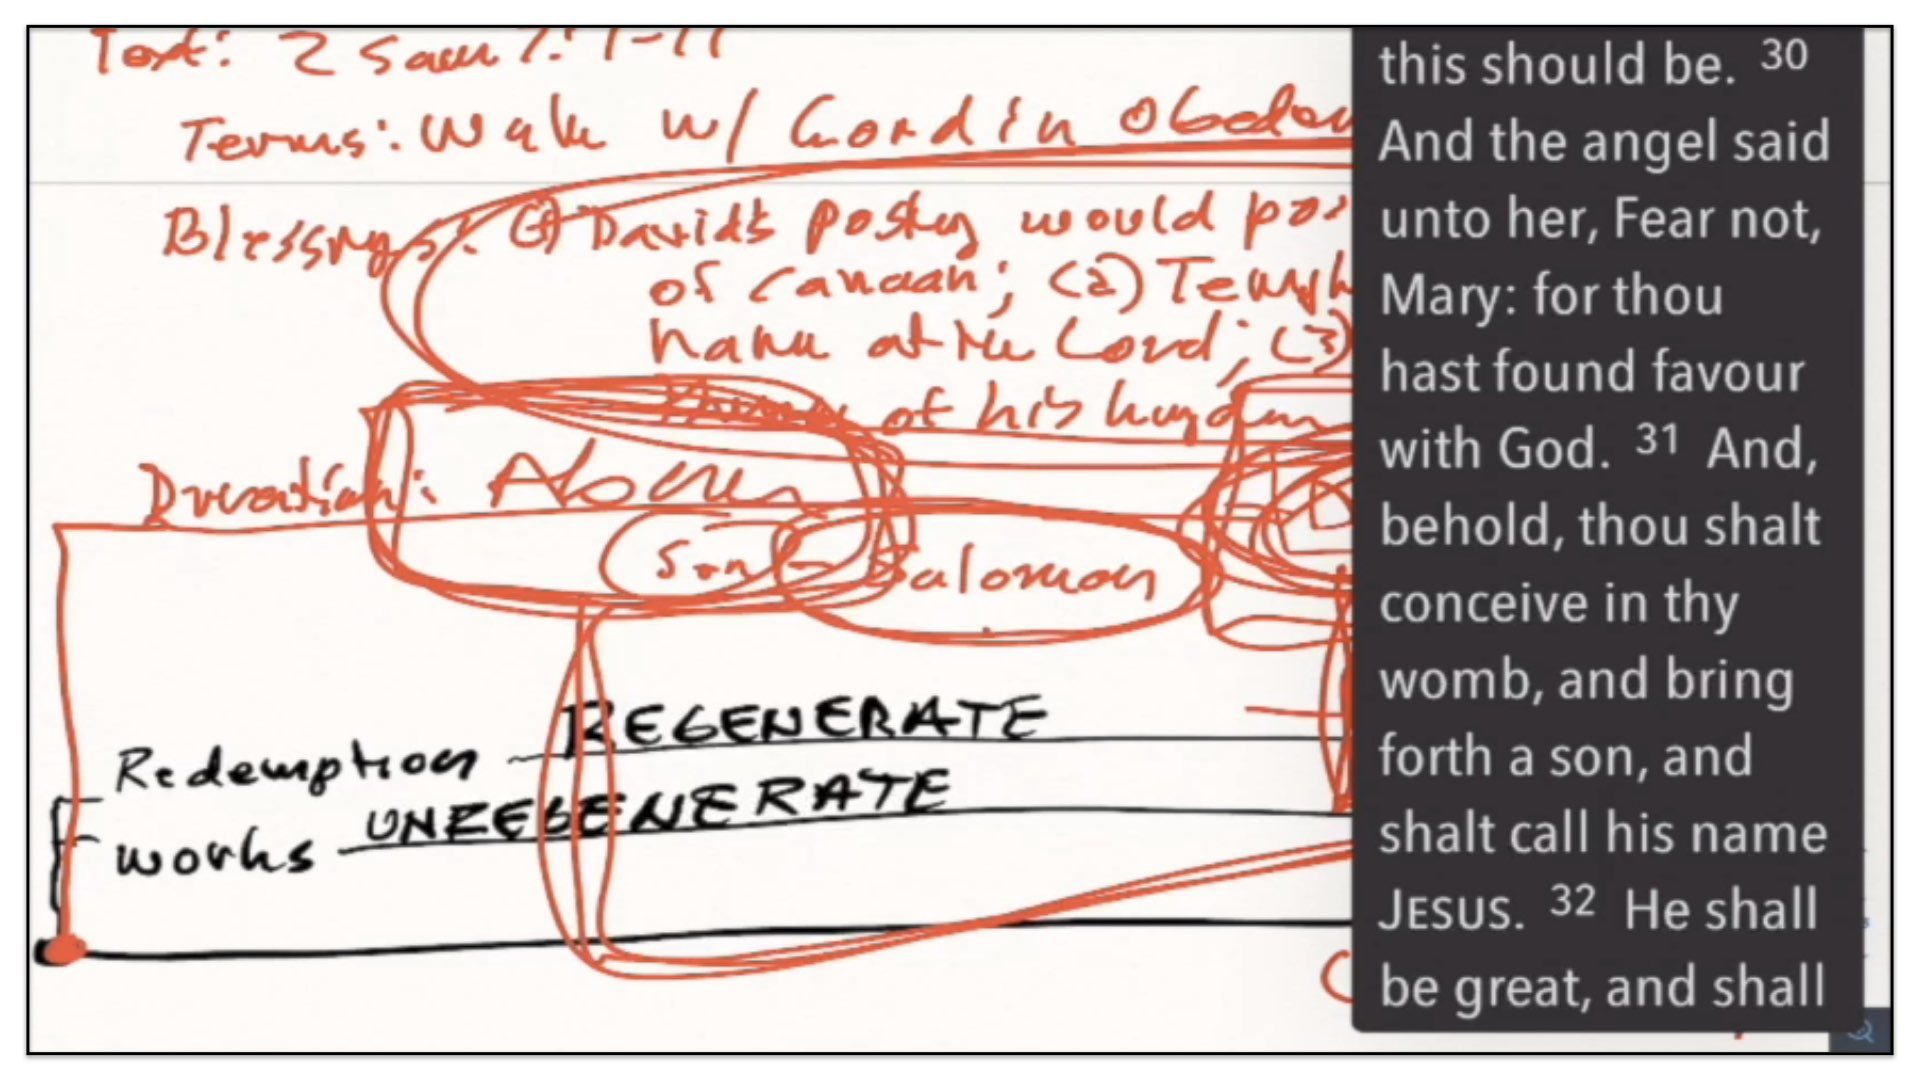 Text: 2 Sam 7:1-17
Terms: Walk w/ Lord in
Blessings: (1) David's would
of Canaan; (2)
name of the Lord; (3)
of his kingdom
Duration:
Son - Salomon
REGENERATE
Redemption
UNREGENERATE
works
this should be. 30
And the angel said
unto her, Fear not,
Mary: for thou
hast found favour
with God. 31 And,
behold, thou shalt
conceive in thy
womb, and bring
forth a son, and
shalt call his name
JESUS. 32 He shall
be great, and shall